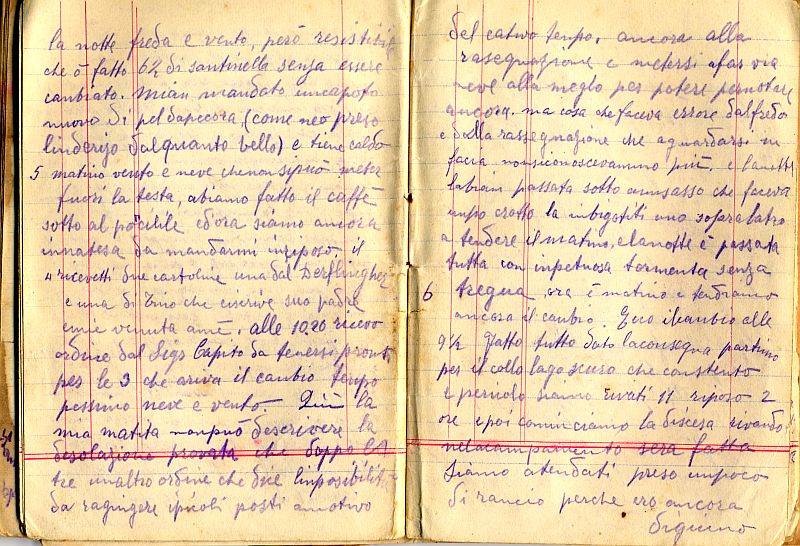 la notte freda e vento, però resistibile
che ò fatto 6½ di santinella senza essere
cambiato. Mian mandato uncapoto
nuovo di pel dapecora (come neo preso
linderizo dalquanto bello) e tiene caldo
5 matino vento e neve chenonsipuò meter
fuori la testa, abiamo fatto il caffè
sotto al porile edora siamo ancora
innatesa da mandarmi inriposo il
4 ricevetti due cartoline una dal Derflingher
e una di Tino che escrive suo padre
emie venuta amè. alle 10.20 ricevo
ordine dal Sigr Capito da tenersi pronti
per le 3 che ariva il canbio tempo
pessimo neve e vento. Quì la
mia matita nonpuò descrivere la
desolazione provata che doppo le
tre unaltro ordine che dice linposibilità
da ragingere ipicoli posti amotivo
del cativo tenpo. ancora alla
rasegnazione e metersi afar via
neve alla meglo per potere pernotare
ancora. ma cosa che faceva errore dalfredo
e dalla rassegnazione che aguardarsi in
facia nonsiconoscevamino più. e lanotte
labian passata sotto aunsasso che faceva
unpo crotto la inbigotiti uno sopralatro
a tendere il matino, elanotte è passata
tutta con inpetuosa tormenta senza
6 tregua, ora è matino e tendiamo
ancora il canbio. Ecco ilcanbio alle
9½ fatto tutto dato laconsegna partimo
per il collo lagoscuro che constento
e periculo siamo rivati 11 riposo 2
ore ipoi cominciamo la discesa rivando
nelacampamento sera fatta
siamo atendati preso unpoco
di rancio perche ero ancora
digiuno